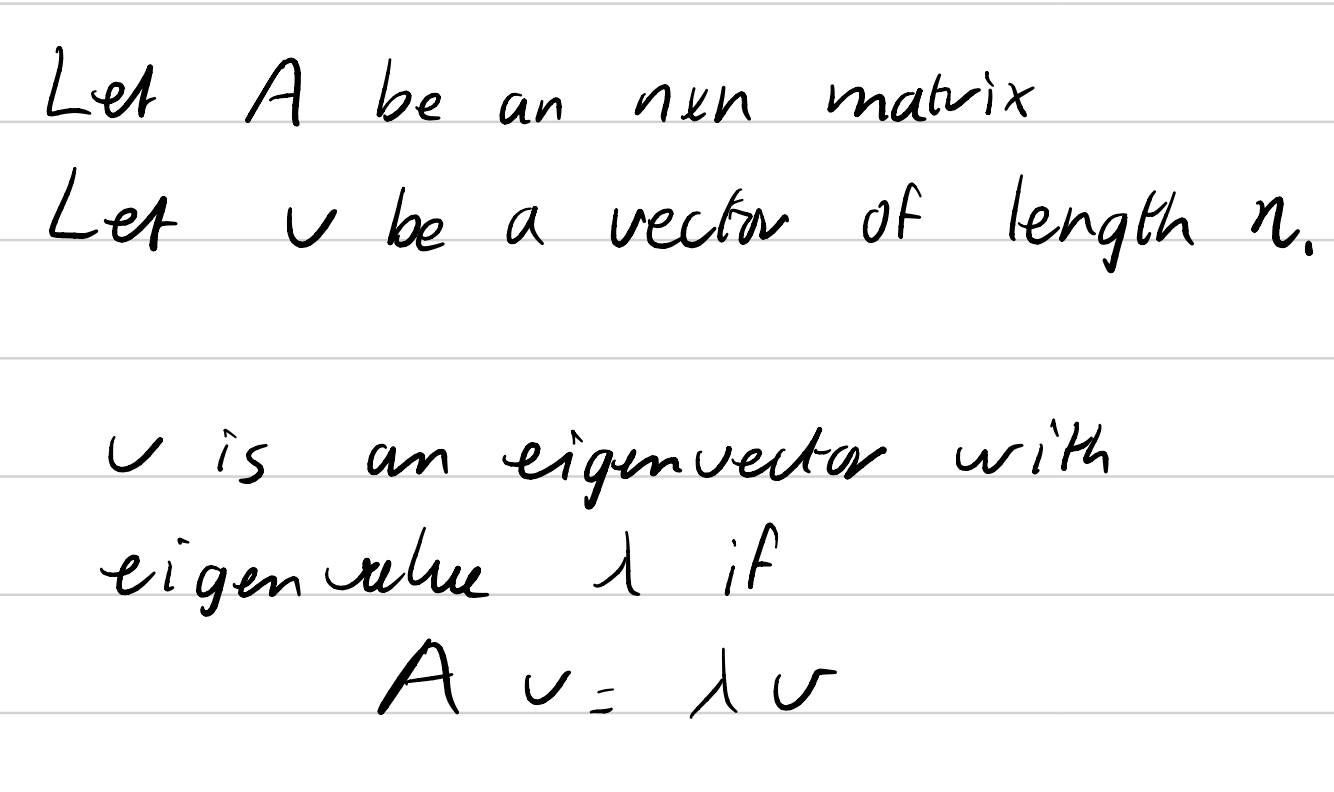 Let A be an nxn matrix
Let v be a vector of length n.
v is an eigenvector with
eigenvalue λ if
A v = λ v